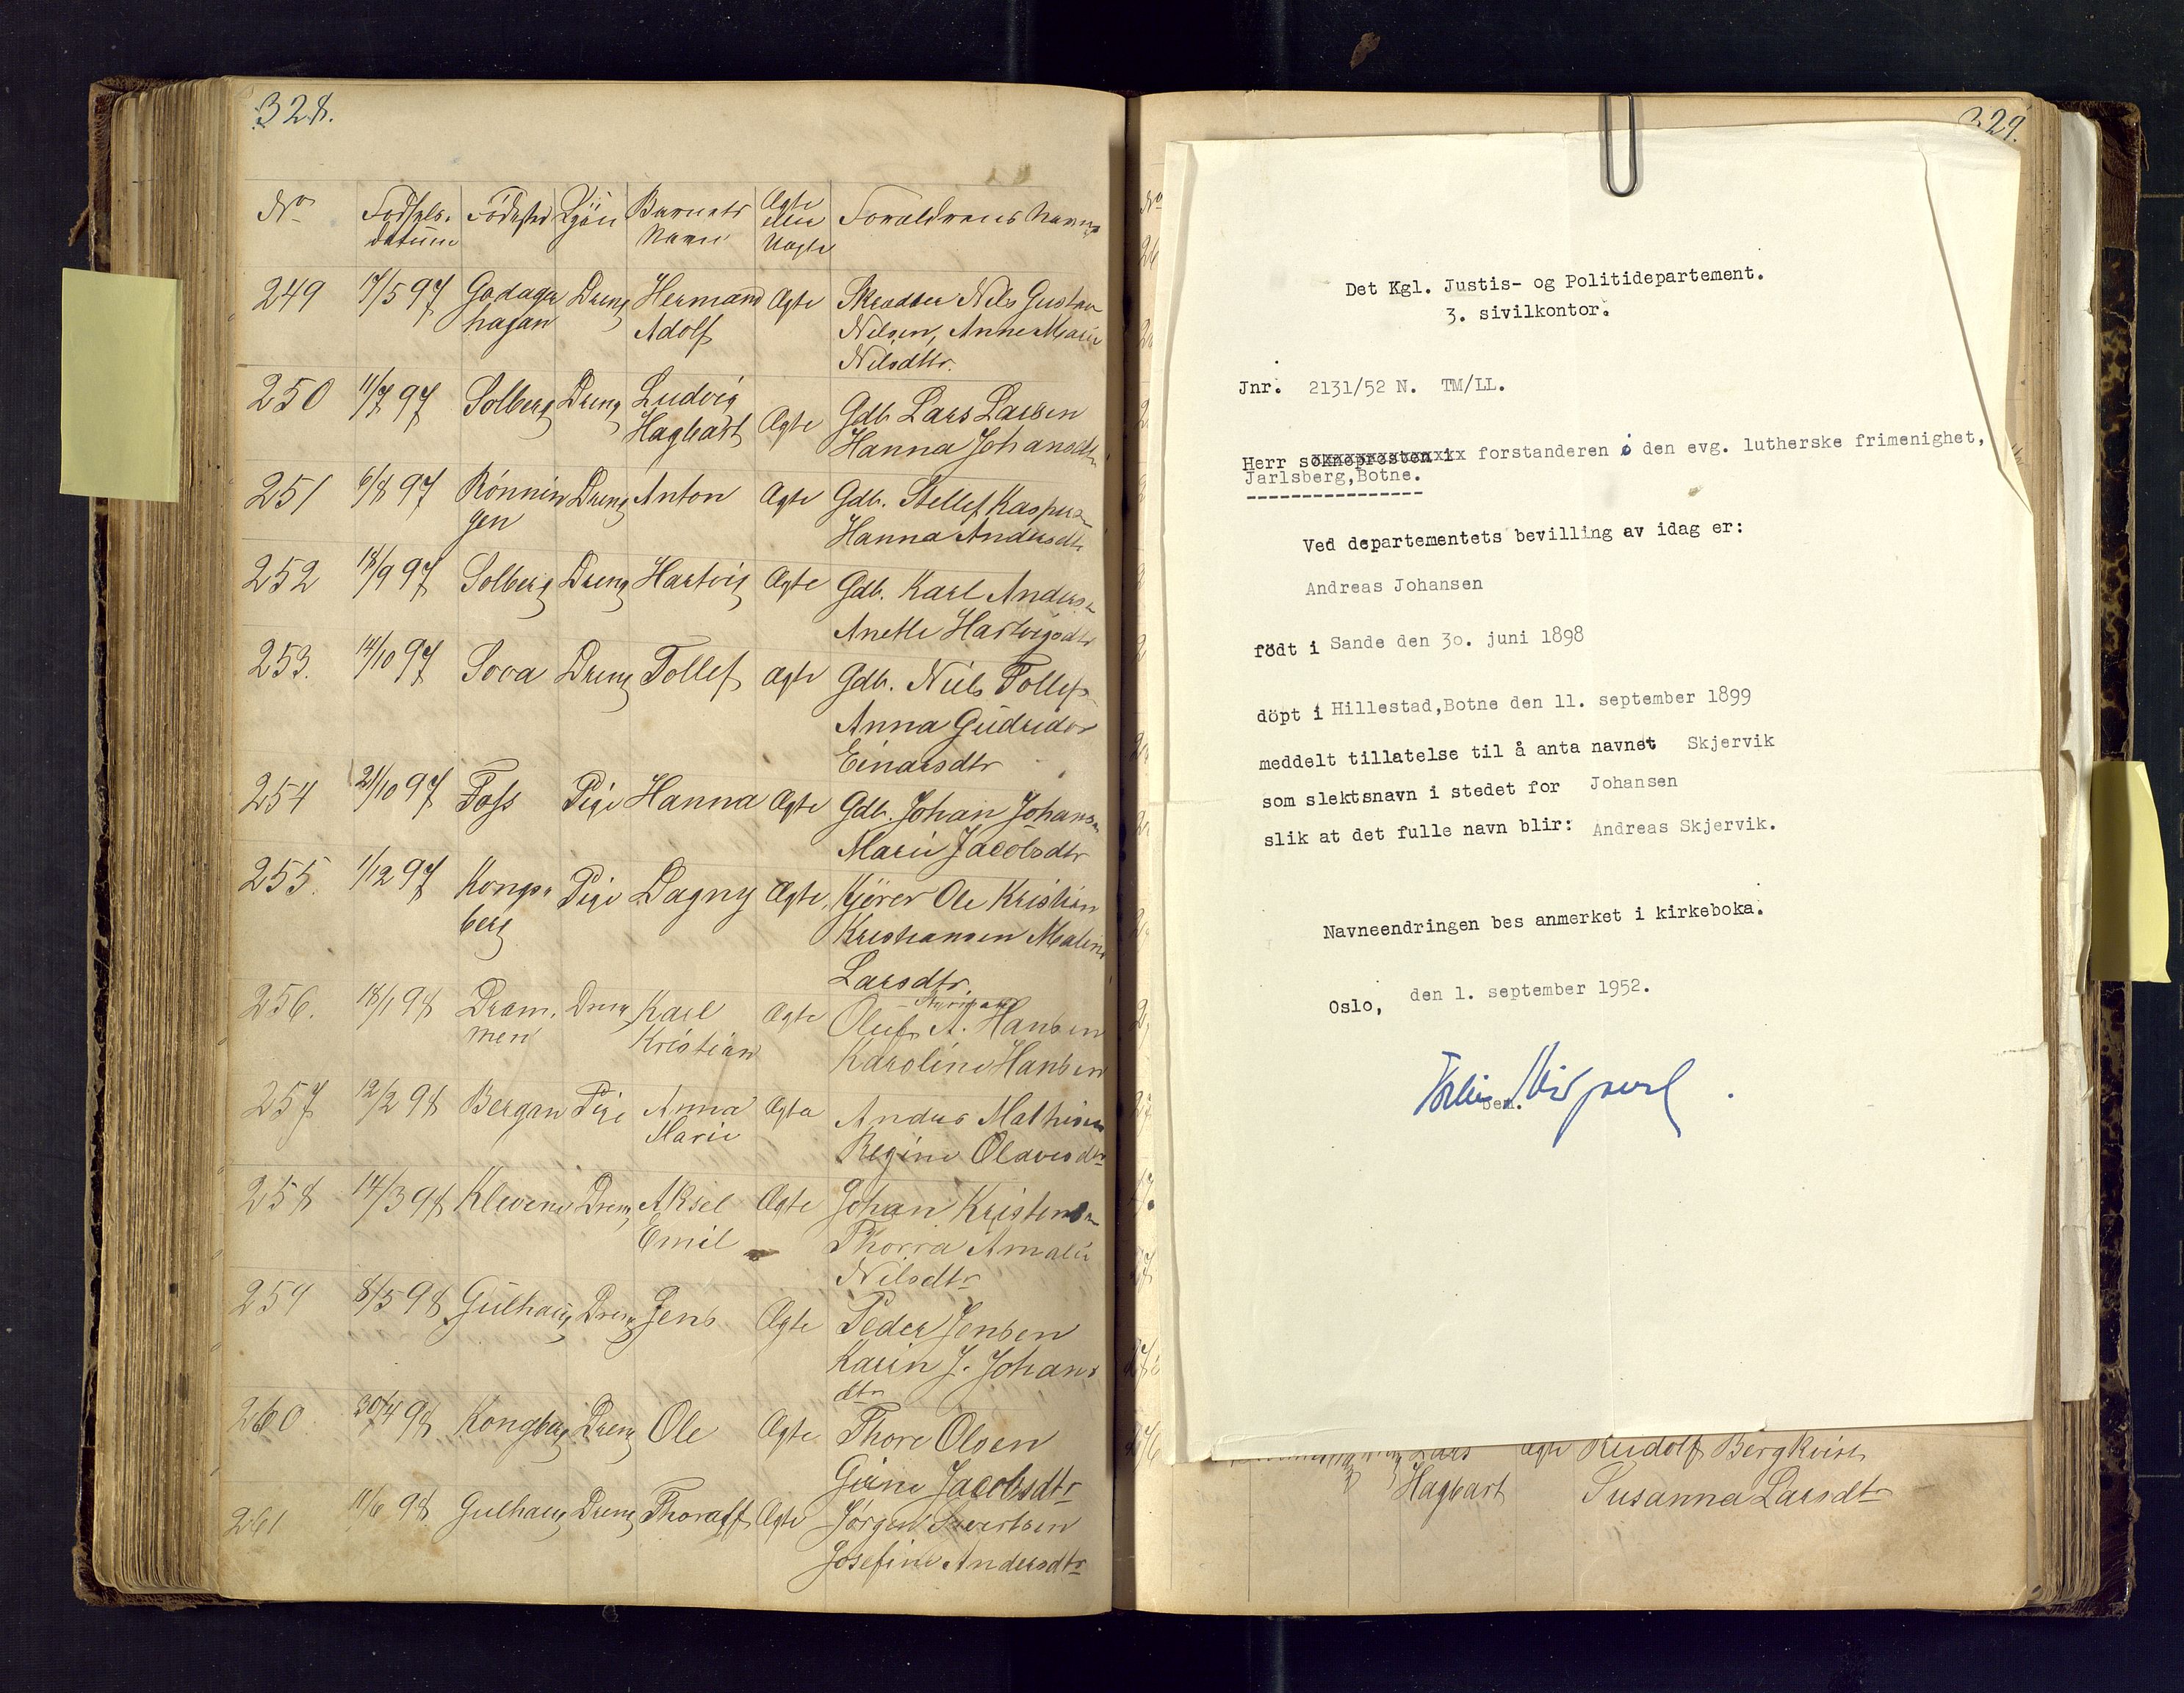 328.
No Fødsels- Födested Kjön Barnets Ægte Forældrenes Navne
datum Navn eller
Uægte
249 17/5 97 Godager Dreng Hermand Ægte Skrædder Nils Gustav
hagan Adolf Nilsen, Anne Marie
Nilsdttr.
250 11/7 97 Solberg Dreng Ludvig Gdb. Lars Larsen
Hagbart Ægte Hanna Johansdtr
251 6/8 97 Rönnin Dreng Anton Ægte Gdb. Stellef Kaspers
gen Hanna Andersdtr
252 18/9 97 Solberg Dreng Hartvig Ægte Gdb. Karl Anders
Anette Hartvigsdtr
253. 14/10 97 Sora Dreng Tollef Ægte Gdb. Niels Tollefs
Anna Gudrider
Einarsdtr
254 21/10 97 Foss Pige Hanna Ægte Gdb. Johan Johans
Marie Jacobsdtr
255. 1/12 97 Kongs- Pige Dagny Ægte Kjörer Ole Kristian
berg Kristiansen Malene
Larsdtr.
256. 18/1 98 Dram- Dreng Karl Ægte Oluf A. Hansen
men Kristian Karoline Hansen
257 12/2 98 Bergan Pige Anna Ægte Anders Mathisen
Marie Regine Olavesdtr
258 14/3 98 Klevene Dreng Aksel Ægte Johan Kristens
Emil Thorra Amalie
Nilsdtr
259 8/5 98 Gulhaug Dreng Jens Ægte Peder Jensen
Karin J. Johans
dtr
260 30/4 98 Kongberg Dreng Ole Ægte Thore Olsen
Gune Jacobsdtr
261 11/6 98 Gulhaug Dreng Thoralf Ægte Jörgen Sivertsen
Josefine Andersdtr
329.
Det Kgl. Justis- og Politidepartement.
3. sivilkontor.
Jnr. 2131/52 N. TM/LL.
Herr sokneprosten i forstanderen i den evg. lutherske frimenighet,
Jarlsberg,Botne.
Ved departementets bevilling av idag er:
Andreas Johansen
födt i Sande den 30. juni 1898
döpt i Hillestad,Botne den 11. september 1899
meddelt tillatelse til å anta navnet Skjervik
som slektsnavn i stedet for Johansen
slik at det fulle navn blir: Andreas Skjervik.
Navneendringen bes anmerket i kirkeboka.
Oslo, den 1. september 1952.
bem.
Lars Ægte Rudolf Bergkvist
Hagbart Susanna Larsdtr